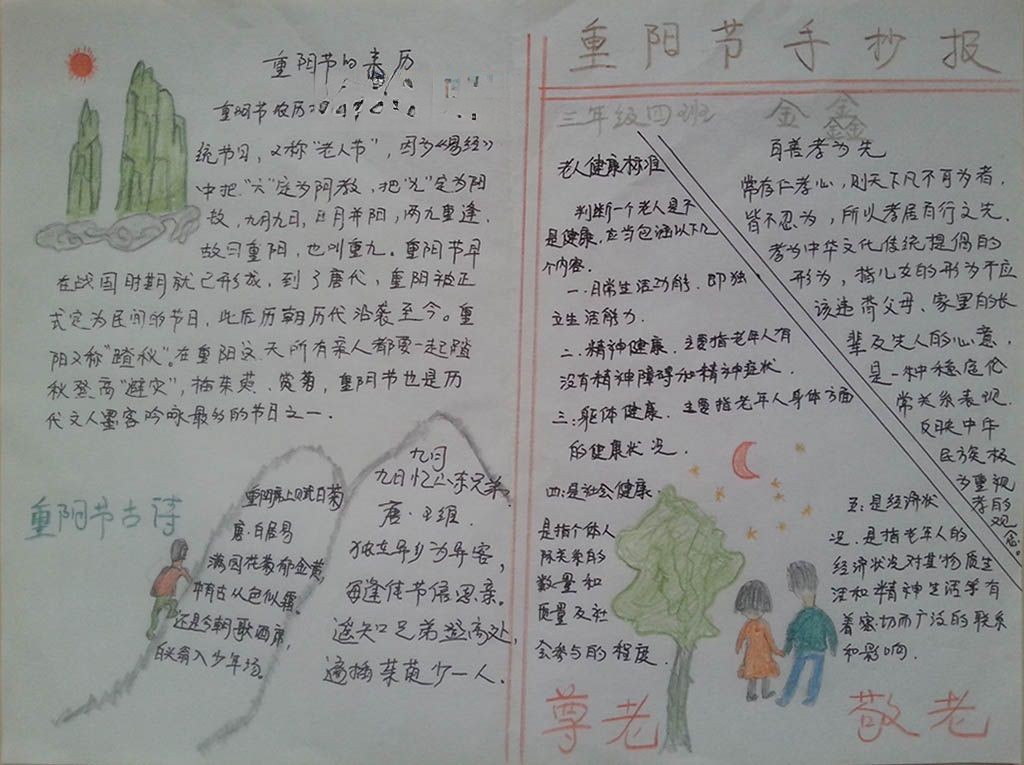 重阳节手抄报
三年级四班 金鑫
重阳节的来历
重阳节农历
统节日，又称“老人节”，因为《易经》
中把“六”定为阴数，把“九”定为阳
数，九月九日，日月并阳，两九重逢，
故曰重阳，也叫重九。重阳节早
在战国时期就已形成，到了唐代，重阳被正
式定为民间的节日，此后历朝历代沿袭至今。重
阳又称“踏秋”。在重阳这天所有亲人都要一起踏
秋登高“避灾”，插茱萸、赏菊，重阳节也是历
代文人墨客吟咏最多的节日之一．
重阳节古诗
重阳席上赋白菊
唐·白居易
满园花菊郁金黄，
中有古从色似霜。
还是今朝歌酒席，
白头翁入少年场。
九月
九日忆山东兄弟
唐．王维．
独立异乡为异客，
每逢佳节倍思亲。
遥知兄弟登高处，
遍插茱萸少一人．
老人健康标准
判断一个老人是不
是健康．应当包涵以下几
个内容．
一．日常生活功能．即独
立生活能力．
二．精神健康．主要指老年人有
没有精神障碍和精神症状．
三：躯体健康．主要指老年人身体方面
的健康状况．
四：是社会健康．
是指个体人
际关系的
数量和
质量及社
会参与的程度．
五：是经济状
况．是指老年人的
经济状况对其物质生
活和精神生活学有
着密切而广泛的联系
和影响．
百善孝为先
常存仁孝心，则天下凡不可为者，
皆不忍为，所以孝居百行之先．
孝为中华文化传统提倡的
形为，指儿女的形为不应
该违背父母、家里的长
辈及先人的心意，
是一种稳定伦
常关系表现．
反映中华
民族极
为重视
孝的
观
念。
尊老
敬老